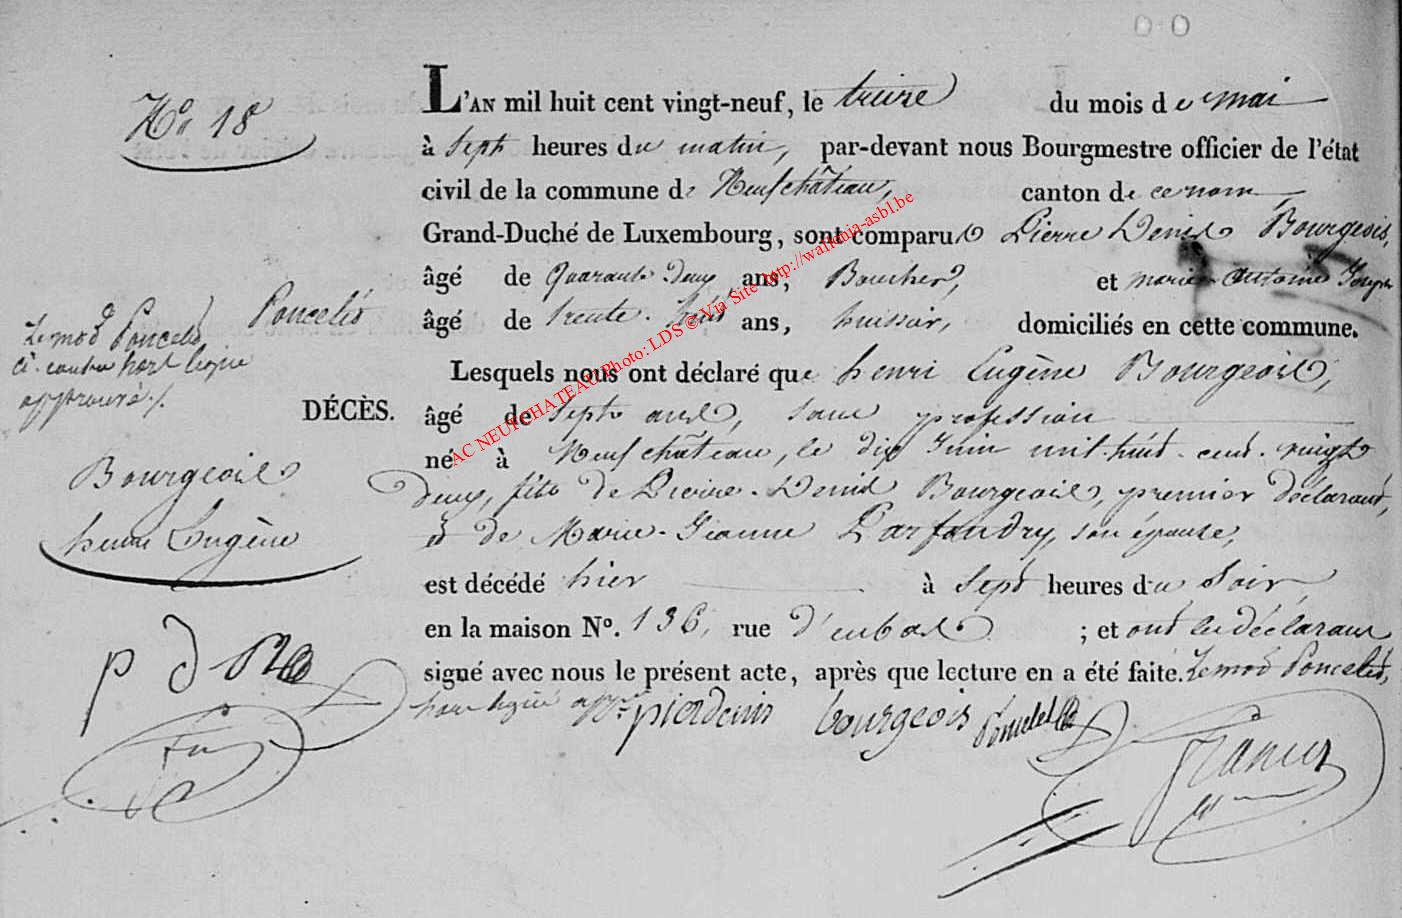 N° 18
L'AN mil huit cent vingt-neuf, le treize du mois de mai
à sept heures du matin, par-devant nous Bourgmestre officier de l'état
civil de la commune de Neufchâteau, canton de ce nom,
Grand-Duché de Luxembourg, sont comparus Pierre Denis Bourgeois,
âgé de quarante deux ans, Boucher, et marie antoine
Poncelet
âgé de trente-huit ans, huissier, domiciliés en cette commune.
Le mot Poncelet,
ci-contre hors ligne
approuvé ./.
Lesquels nous ont déclaré que henri Eugène Bourgeois,
DÉCÈS.
âgé de sept ans, sans profession
né à Neufchâteau, le dix Juin mil-huit-cent-vingt
deux, fils de Pierre-Denis Bourgeois, premier déclarant,
et de Marie-Jeanne Parfondry, son épouse,
Bourgeois
henri Eugène
est décédé hier à sept heures du soir,
en la maison N°. 136, rue ; et ont les déclarans
signé avec nous le présent acte, après que lecture en a été faite. Le mot Poncelet,
hors ligne app.
pierdenis bourgeois Poncelet
p d B
AC NEUFCHATEAU Photo: LDS © Via Site http://wallonia-asbl.be